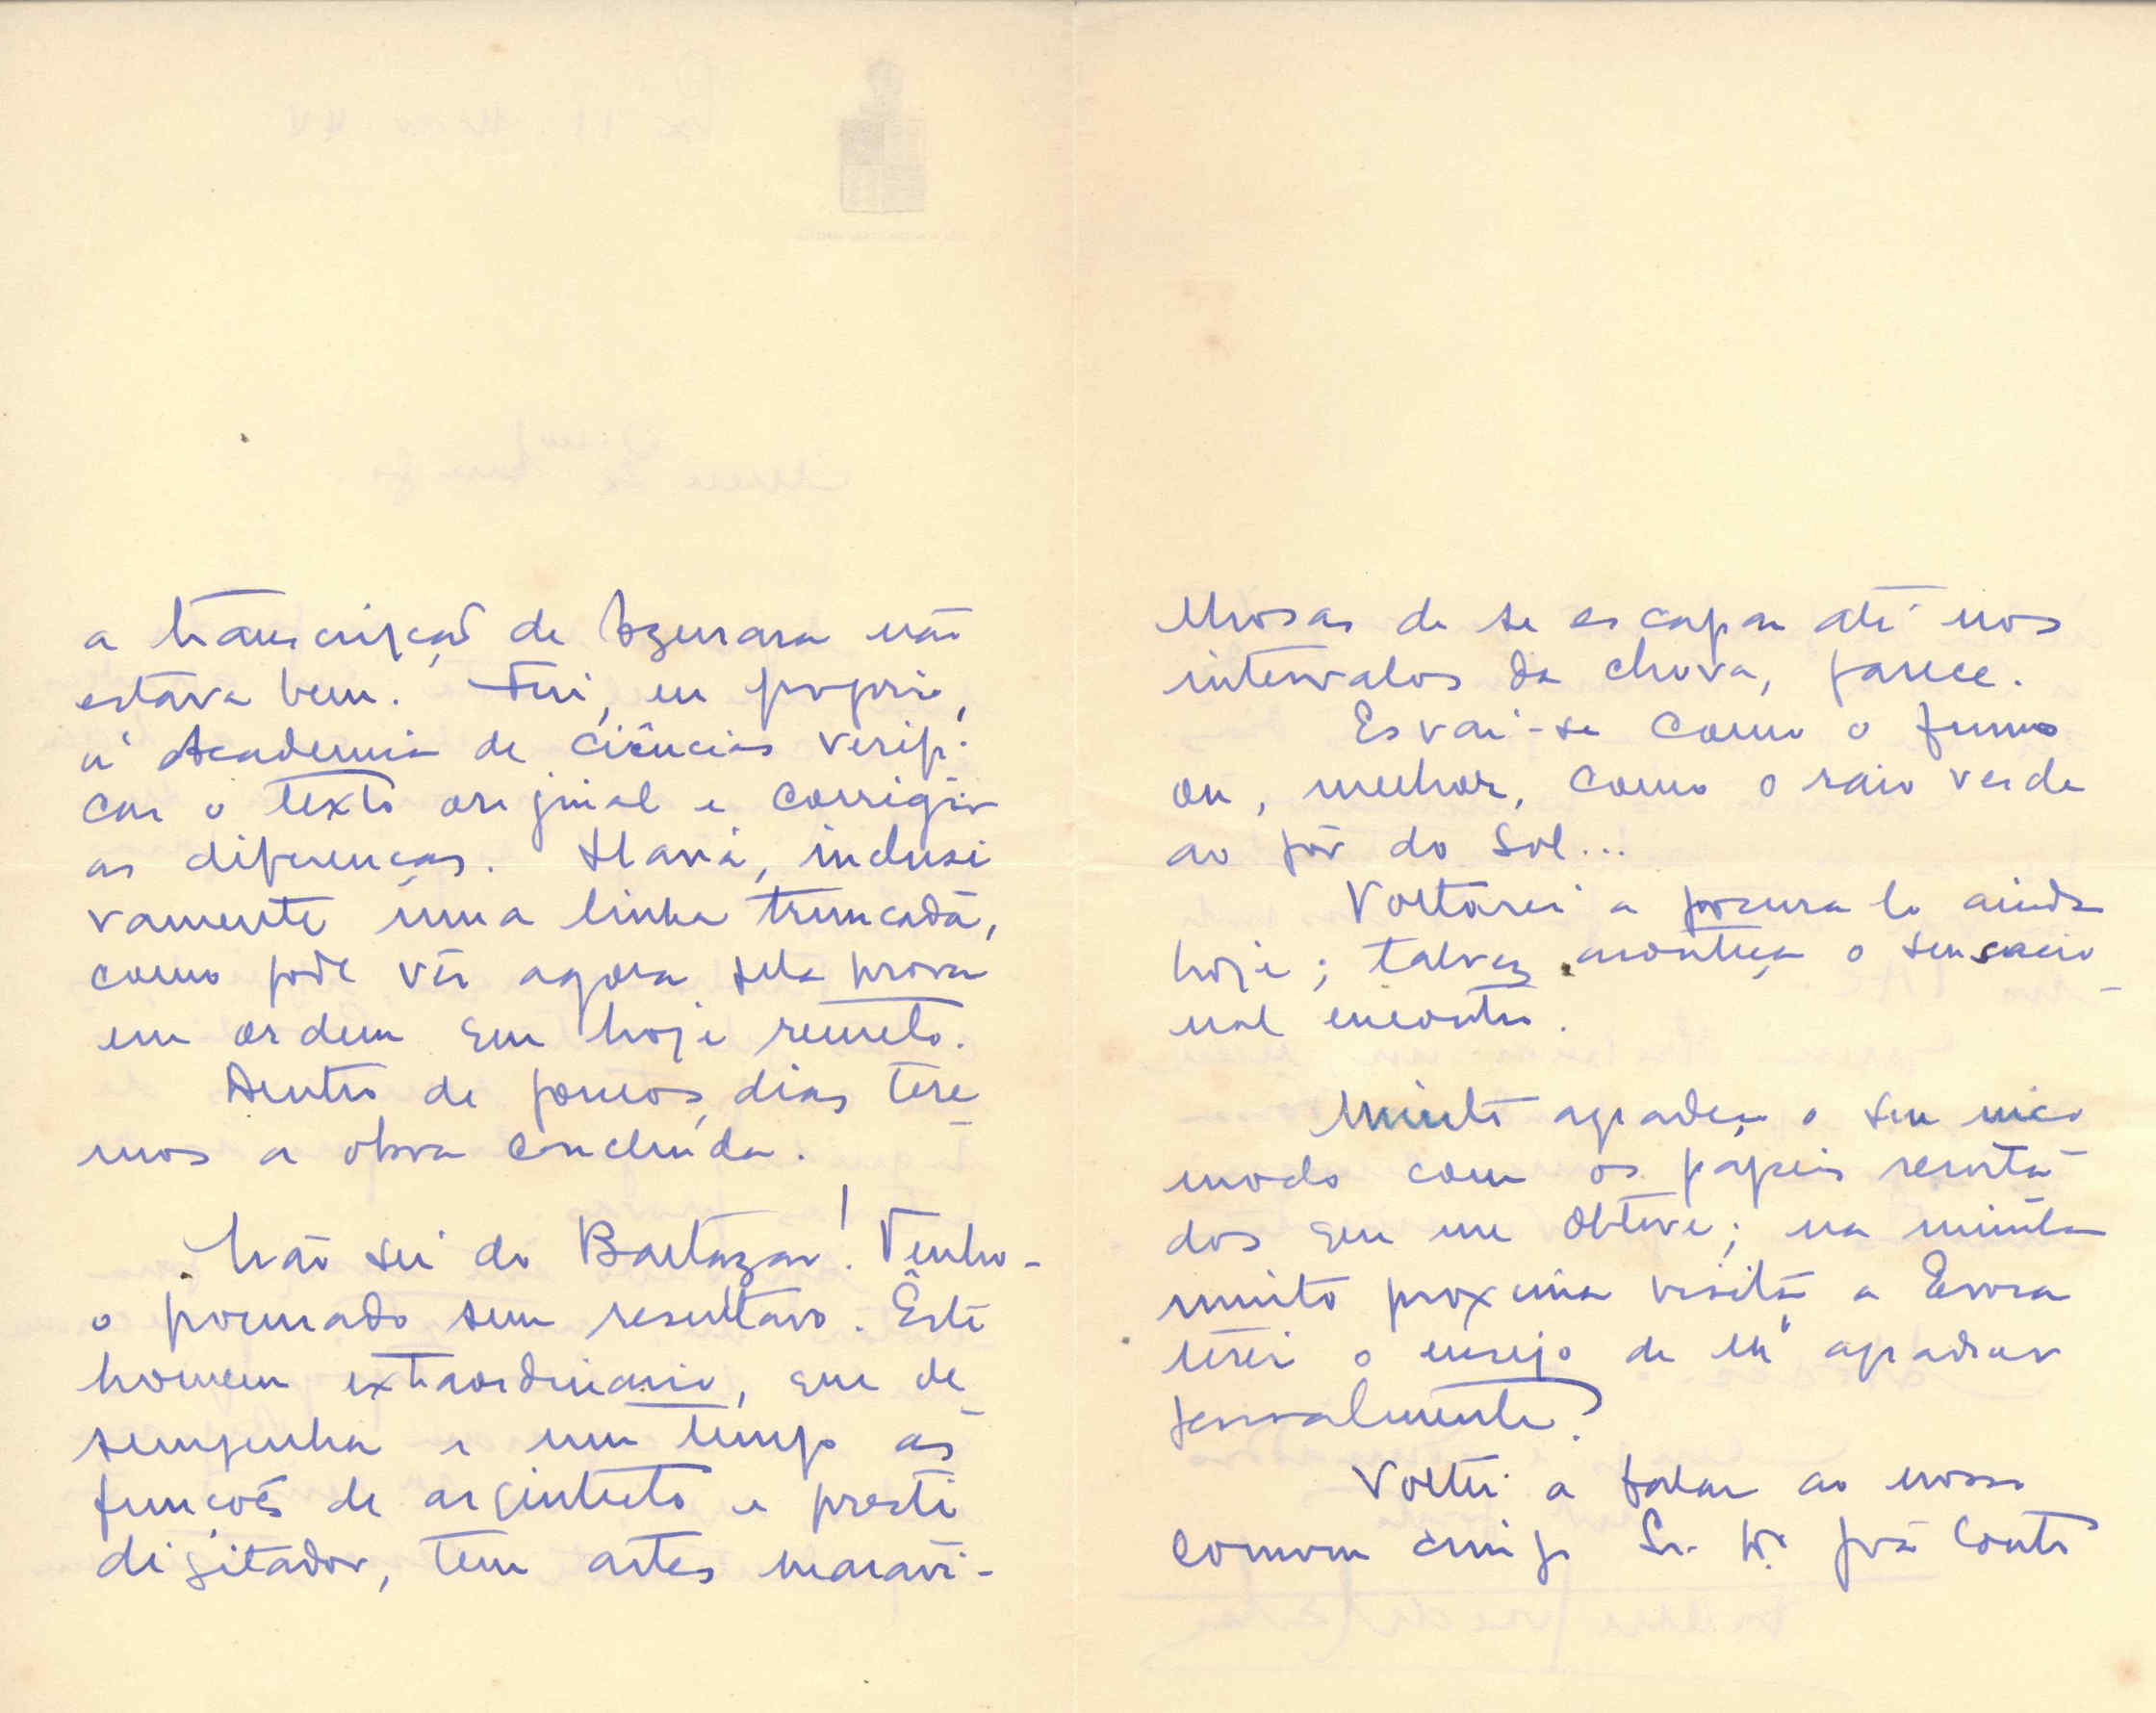 a transcrição de Azurara não
estava bem. Fui, eu proprio,
á Academia de Ciências verifi-
car o texto original e corrigir
as diferenças. Havia, inclusi
vamente uma linha truncada,
como pode vêr agora pela prova
em ordem que hoje remeto.
Dentro de poucos dias tere-
mos a obra concluida.
Não sei do Baltazar! Tenho-
o procurado sem resultado. Este
homem extraordinario, que de-
sempenha a um tempo as
funcções de arquitecto e presti
digitador, tem artes maravi-
lhosas de se escapar até nos
intervalos da chuva, parece.
Esvai-se como o fumo
ou, melhor, como o raio verde
ao pôr do Sol...
Voltarei a procura lo ainda
hoje; talvez aconteça o sensacio-
nal encontro.
Muito agradeço o seu inco-
modo com os papeis
dos que me obteve; na minha
muito proxima visita a Evora
terei o ensejo de lh' agradecer
pessoalmente?
Voltei a falar ao nosso
comum amigo Sr. Dr. Couto